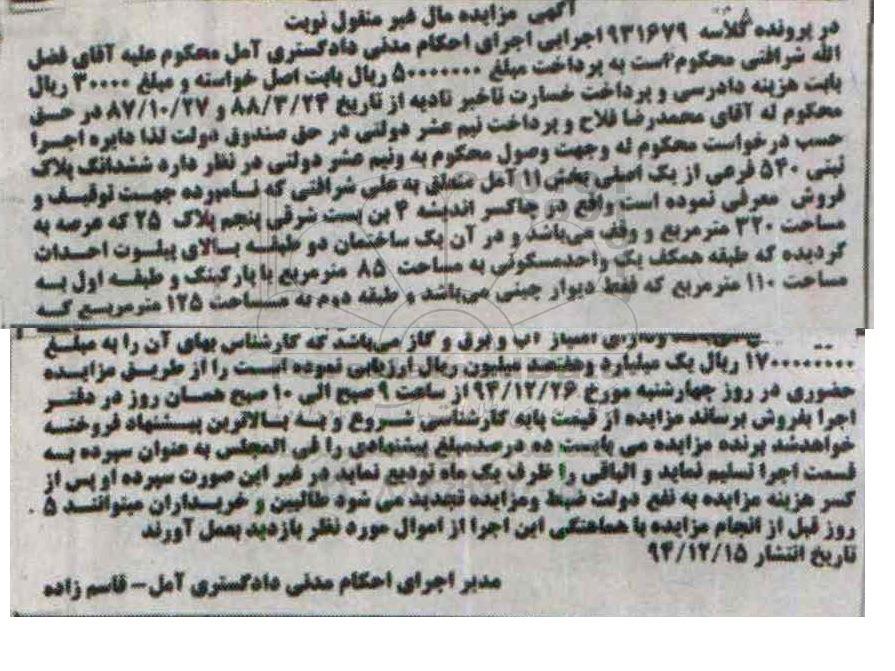 آگهی مزایده مال غیر منقول نوبت
در پرونده کلاسه ۹۳۱۶۷۹ اجرایی اجرای احکام مدنی دادگستری آمل محکوم علیه آقای فضل
الله شرافتی محکوم است به پرداخت مبلغ ۵۰۰۰۰۰۰۰ ریال بابت اصل خواسته و مبلغ ۳۰۰۰۰ ریال
بابت هزینه دادرسی و پرداخت خسارت تاخیر تادیه از تاریخ ۸۸/۳/۲۴ و ۸۷/۱۰/۲۷ در حق
محکوم له آقای محمدرضا فلاح و پرداخت نیم عشر دولتی در حق صندوق دولت لذا دایره اجرا
حسب درخواست محکوم له وجهت وصول محکوم به ونیم عشر دولتی در نظر دارد ششدانگ پلاک
ثبتی ۵۴۰ فرعی از یک اصلی بخش ۱۱ آمل متعلق به علی شرافتی که نامبرده جهت توقیف و
فروش معرفی نموده است واقع در چاکسر اندیشه ۴ بن بست شرقی پنجم پلاک ۲۵ که عرصه به
مساحت ۳۲۰ مترمربع و وقف می‌باشد و در آن یک ساختمان دو طبقه بالای پیلوت احداث
گردیده که طبقه همکف یک واحدمسکونی به مساحت ۸۵ مترمربع با پارکینگ و طبقه اول به
مساحت ۱۱۰ مترمربع که فقط دیوار چینی می‌باشد و طبقه دوم به مساحت ۱۲۵ مترمربع که
امتیاز آب و برق و گاز می‌باشد که کارشناس بهای آن را به مبلغ
۱۷۰۰۰۰۰۰۰۰ ریال یک میلیارد وهفتصد میلیون ریال ارزیابی نموده است را از طریق مزایده
حضوری در روز چهارشنبه مورخ ۹۴/۱۲/۲۶ از ساعت ۹ صبح الی ۱۰ صبح همان روز در دفتر
اجرا بفروش برساند مزایده از قیمت پایه کارشناسی شروع و به بالاترین پیشنهاد فروخته
خواهدشد برنده مزایده می بایست ده درصدمبلغ پیشنهادی را فی المجلس به عنوان سپرده به
قسمت اجرا تسلیم نماید و الباقی را ظرف یک ماه تودیع نماید در غیر این صورت سپرده او پس از
کسر هزینه مزایده به نفع دولت ضبط ومزایده تجدید می شود طالبین و خریداران میتوانند ۵
روز قبل از انجام مزایده با هماهنگی این اجرا از اموال مورد نظر بازدید بعمل آورند
تاریخ انتشار ۹۴/۱۲/۱۵
مدیر اجرای احکام مدنی دادگستری آمل - قاسم زاده